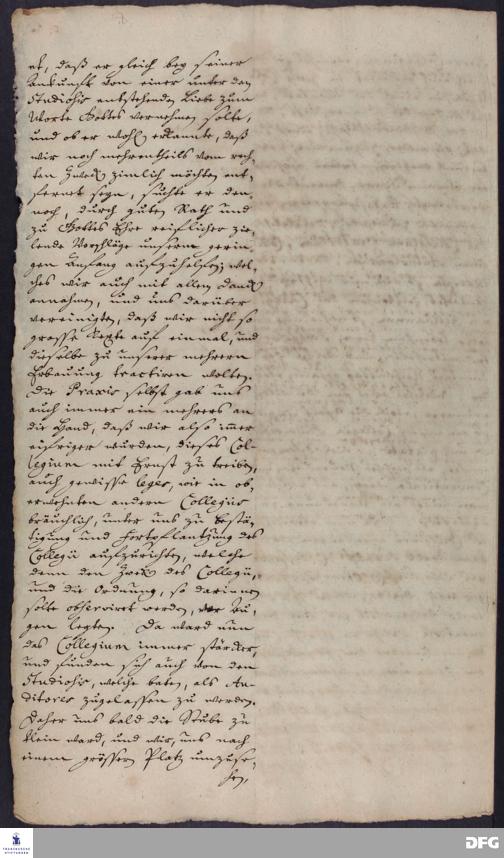 et, daß er gleich bey seiner
Ankunfft von einer unter den
Studiosis entstehenden Liebe zum
Worte Gottes vernehmen solte,
und ob er wohl erkannte, daß
wir noch mehrentheils vom rech-
ten Zweck zimlich möchten ent-
fernet seyn, suchte er den-
noch, durch guten Rath und
zu Gottes Ehre reifflicher zie-
lende Vorschläge unserm gerin-
gen Anfang auffzuhelffen; wel-
ches wir auch mit allem Danck
annahmen, und uns darüber
vereinigten, daß wir nicht so
grosse Texte auf einmal, und
dieselbe zu unserer mehrern
Erbauung tractiren wolten.
Die Praxis selbst gab uns
auch immer ein mehrers an
die Hand, daß wir also im̃er
eifriger wurden, dieses Col-
legium mit Ernst zu treiben,
auch gewisse leges, wie in ob-
erwehnten andern Collegiis
bräuchlich, unter uns zu bestä-
tigung und Fortpflantzung des
Collegii auffzurichten, welche
denn den Zweck des Collegii,
und die Ordnung, so darinnen
solte observiret werden, vor Au-
gen legten. Da ward nun
das Collegium immer stärcker,
und funden sich auch von den
Studiosis, welche baten, als Au-
ditores zugelassen zu werden.
Daher uns bald die Stube zu
klein ward, und wir, uns nach
einem grössern Platz umzuse-
hen,
FRANCKESCHE
STIFTUNGEN
DFG